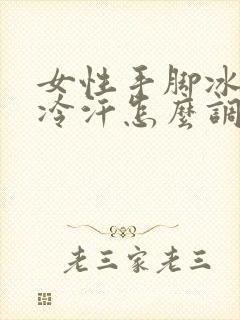 女性手脚冰
冷汗怎麼調
老三家老三